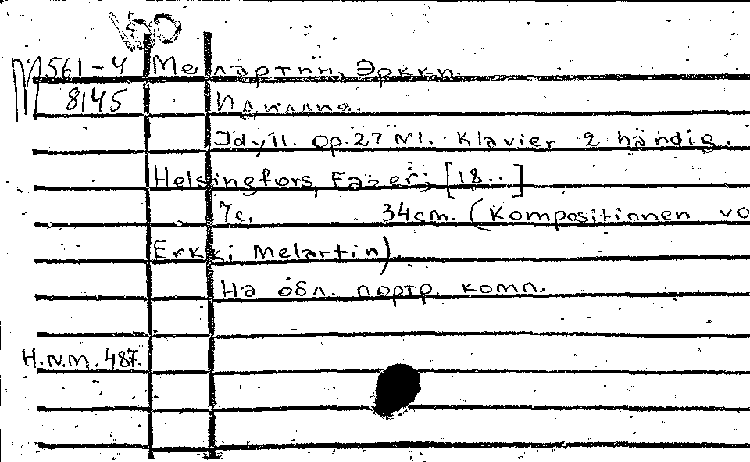 М561-4 Мелартин, Эркки.
8145 Идиллия.
Idyll. Op.27 N1. Klavier 2 händig.
Helsingfors, Fazer, [18..]
7c. 34cm. (Kompositionen vo
Erkki Melartin).
На обл. портр. комп.
H.N.M. 487.